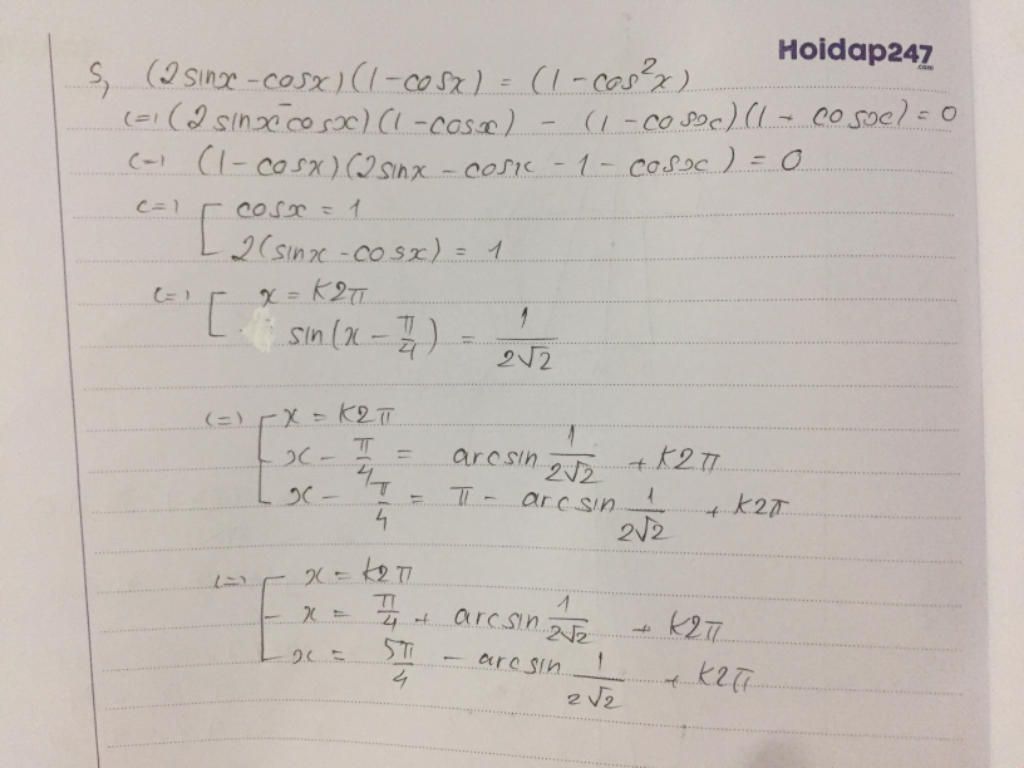 Hoidap247
.com
5, (2sinx - cosx)(1 - cosx) = (1 - cos²x)
<=> (2sinx - cosx)(1 - cosx) - (1 - cosx)(1 + cosx) = 0
<=> (1 - cosx)(2sinx - cosx - 1 - cosx) = 0
<=> [ cosx = 1
2(sinx - cosx) = 1
<=> [ x = k2π
sin(x - π/4) = 1/(2√2)
<=> [ x = k2π
x - π/4 = arcsin 1/(2√2) + k2π
x - π/4 = π - arcsin 1/(2√2) + k2π
<=> [ x = k2π
x = π/4 + arcsin 1/(2√2) + k2π
x = 5π/4 - arcsin 1/(2√2) + k2π